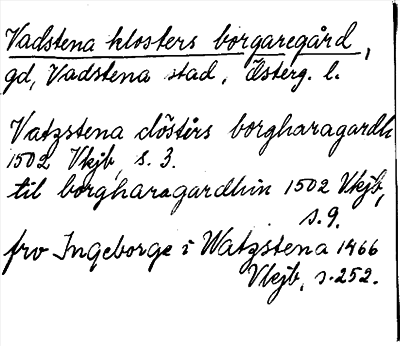 Vadstena klosters borgaregård,
gd, Vadstena stad, Österg. l.
Vatzstena clöstirs borgharagardh
1502 Vkjb, s. 3.
til borgharagardhin 1502 Vkjb,
s. 9.
fro Ingeborge i Watzstena 1466
Vkjb, s. 252.